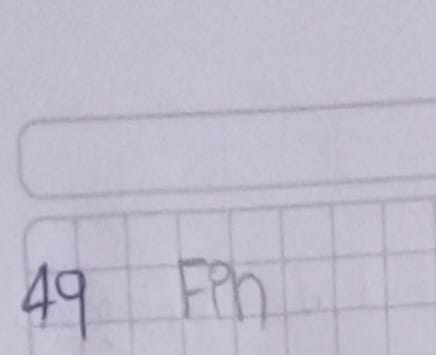 49 Fin